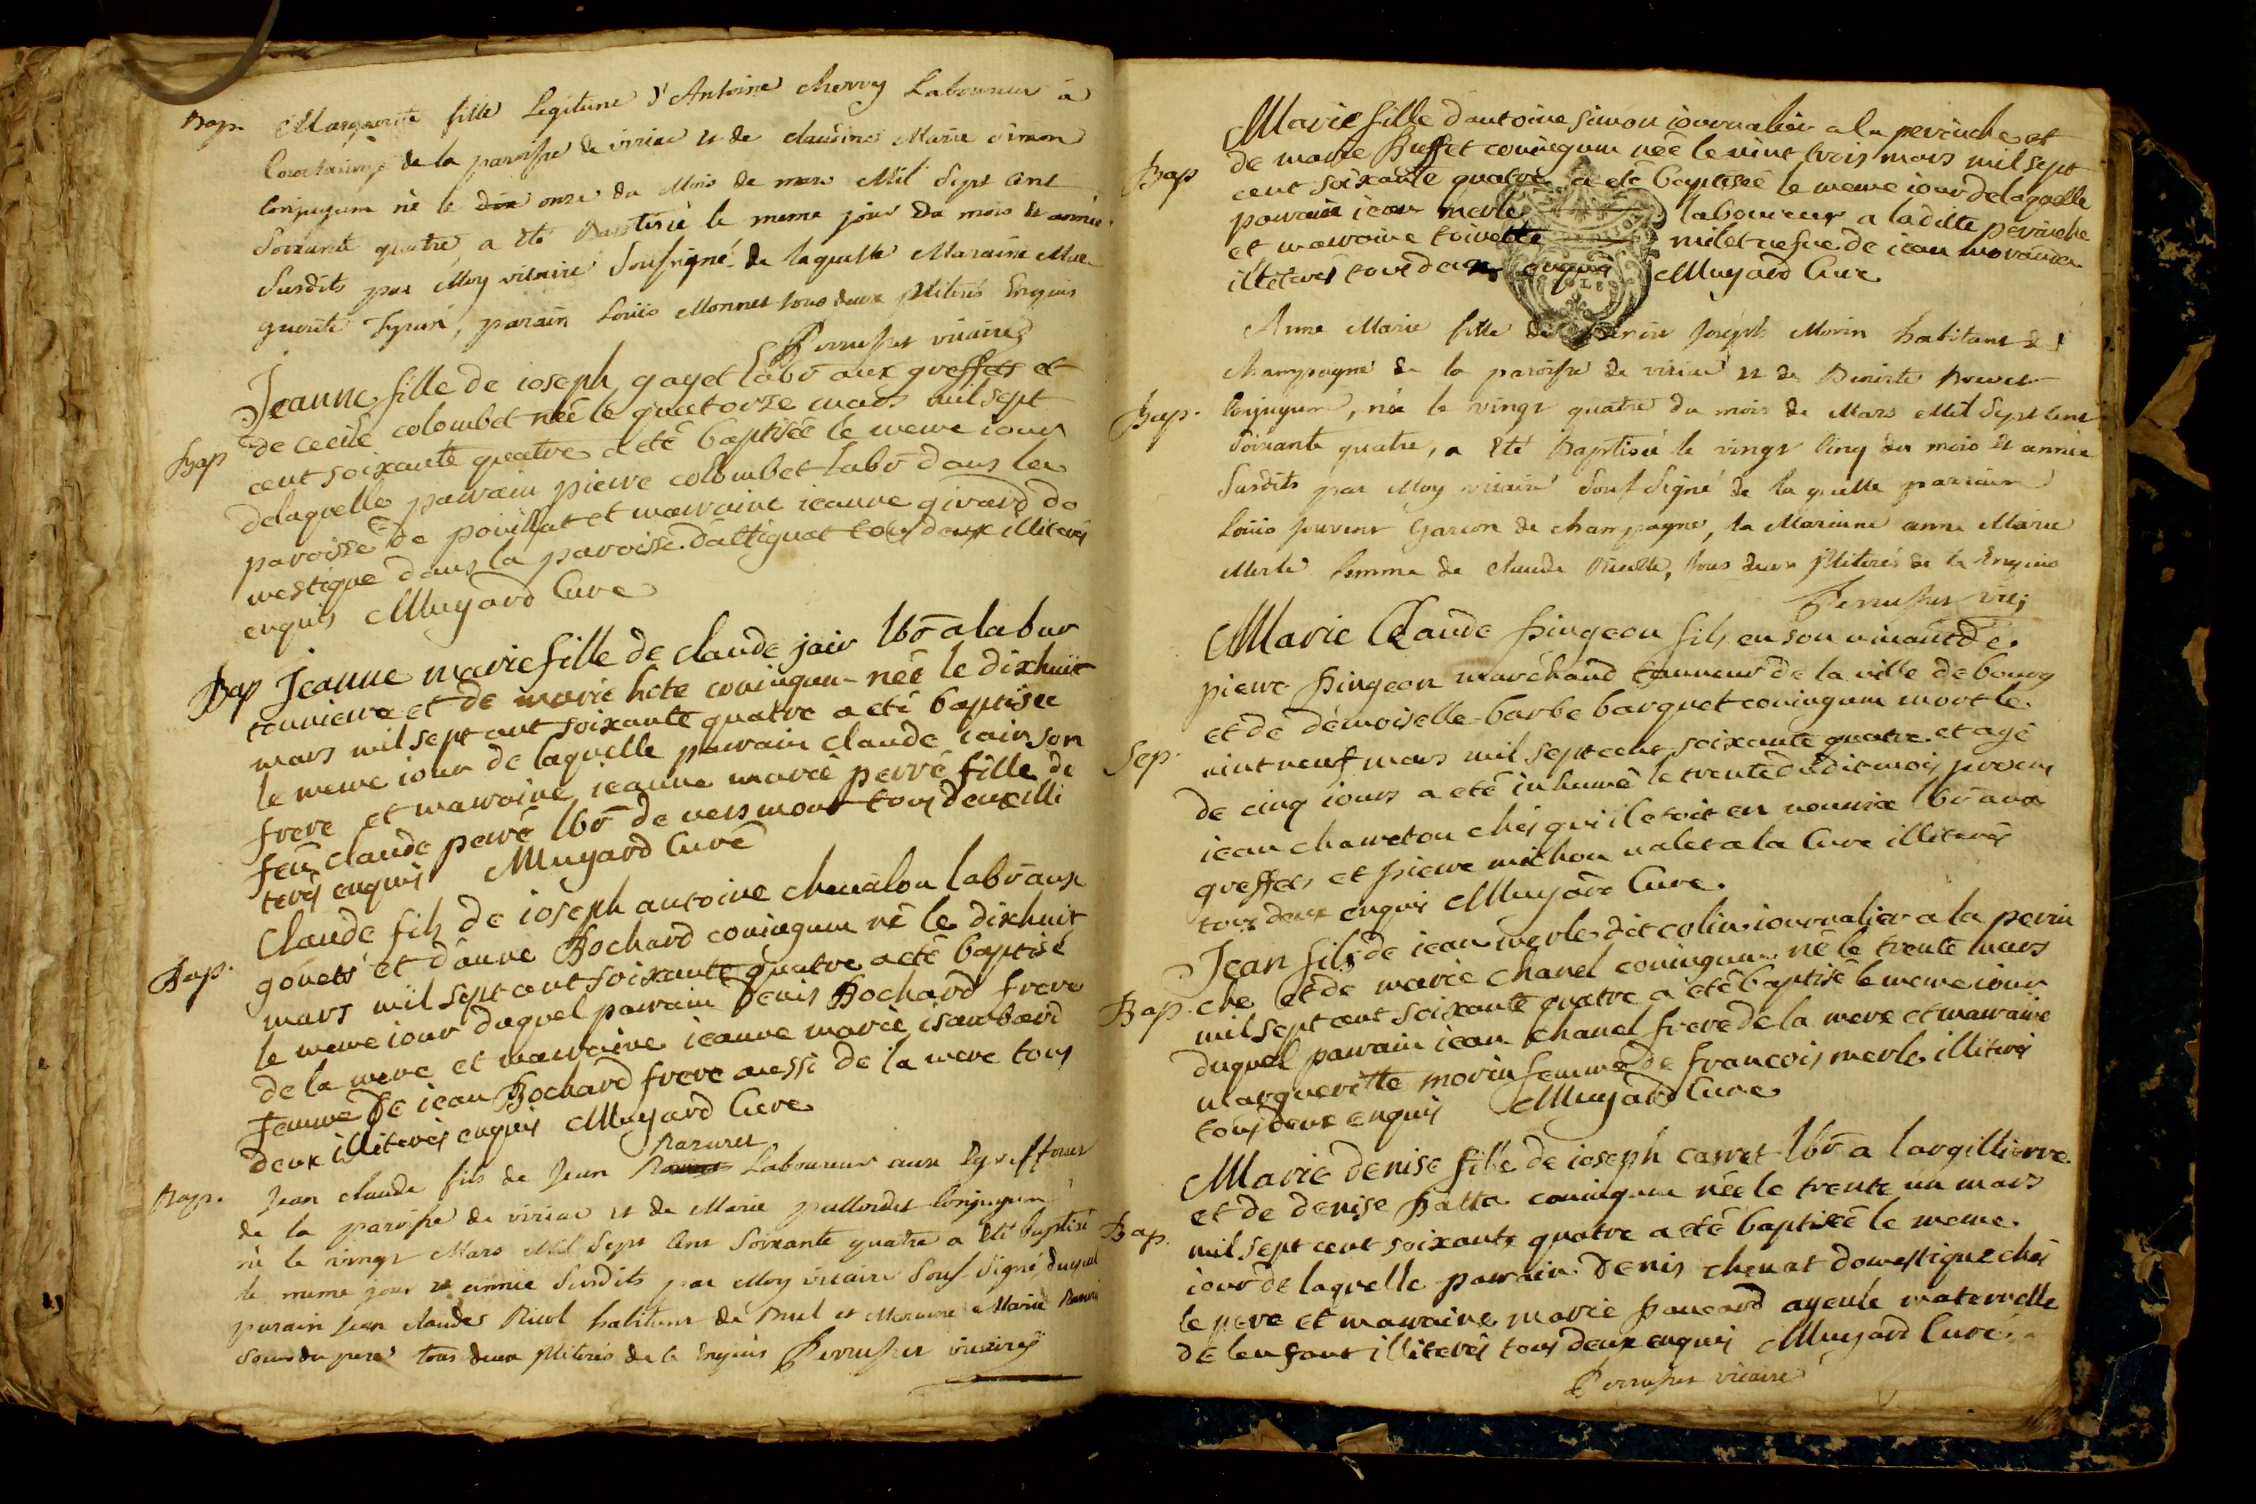 Bap. Marguerite fille Legitime d'Antoine cherry Laboureur a
de la paroisse de viriac et de claudine Marie simon
conjugum né le dix onze du Mois de mars Mil Sept Cent
Soixante quatre a été Baptisé le meme jour du mois et année
Susdits par Moy vicaire Soussigné de laquelle Maraine Mar
guerite , parain Loüis Monnet tous deux Illiterés Enquis
Perrusset vicaire
Jeanne fille de ioseph gayet labr aux greffets et
de cecile colombet neé le quatorze mars mil sept
Bap cent soixante quatre a eté baptisée le meme iour
delaquelle parrain pierre colombet labr dans la
paroisse de poüillat et marraine ieanne girard do
mestique dans la paroisse dattignat tous deux illiterés
enquis Muyard Curé
Bap Jeanne marie fille de claude jair lbr a la bur
tonniere et de marie hete coniugum neé le dixhuit
mars mil sept cent soixante quatre a eté baptisée
le meme iour de laquelle parrain claude iair son
frere et marraine ieanne marie perré fille de
feu claude perré lbr de vers mont tous deux illi
terés enquis Muyard Curé
Claude fils de ioseph antoine chevalon labr aux
goüets et danne Bochard coniugum né le dixhuit
Bap. mars mil sept cent soixante quatre a eté baptisé
le meme iour duquel parrain denis Bochard frere
de la mere et marraine ieanne marie isambard
femme de iean Bochard frere aussi de la mere tous
deux illiterés enquis Muyard Curé
Bap. Jean claude fils de Jean Laboureur aux
de la paroisse de viriac et de Marie conjugum
né le vingt Mars Mil Sept Cent Soixante quatre a été baptisé
le meme jour et année Susdits par Moy vicaire Sous-Signé, duquel
parain Jean claudes Ricol habitant de et Maraine Marie
Soeur du pere tous deux Illiterés de ce Enquis Perrusset vicaire
Marie fille dantoine simon iournalier a la perinche et
de marie Buffet coniugum neé le vint trois mars mil sept
Bap cent soixante quatre a eté baptisée le meme iour delaquelle
parrain iean merle laboureur a ladite perinche
et marraine toinette milet de iean
illiterés tous deux enquis Muyard Curé
Anne Marie fille de Joseph Morin habitant de
champagne de la paroisse de viriac et de Benoite
Bap. Conjugum, née le vingt quatre du mois de Mars Mil Sept Cent
Soixante quatre, a été Baptisée le vingt Cinq du mois et année
Susdits par Moy vicaire Sous Signé de la quelle parrain
Loüis Garcon de champagne, la Maraine anne Marie
Merle femme de claude , tous deux Illiterés de ce Enquis
Perrusset vic;
Marie Claude pingeon fils en son vivant de
pierre pingeon marchand tanneur de la ville de bourg
et de demoiselle barbe barquet coniugum mort le
Sep. vint neuf mars mil sept cent soixante quatre et agé
de cinq iours a eté inhumé le trente dudit mois presens
iean charveton chés qui il etoit en nourice lbr aux
greffets et pierre michon valet a la Cure illiterés
tous deux enquis Muyard Curé.
Jean fils de iean merle dit colin iournalier a la perin
che et de marie chanel coniugum né le trente mars
Bap. mil sept cent soixante quatre a eté baptisé le meme iour
duquel parrain iean chanel frere de la mere et marraine
margueritte morin femme de francois merle illiterés
tous deux enquis Muyard Curé
Marie denise fille de ioseph carret lbr a largillierre
et de denise patta coniugum née le trente un mars
Bap. mil sept cent soixante quatre a eté baptisée le meme
iour de laquelle parrain denis chenat domestique chés
le pere et marraine marie pancard ayeule maternelle
de lenfant illiterés tous deux enquis Muyard Curé.
Perrusset vicaire